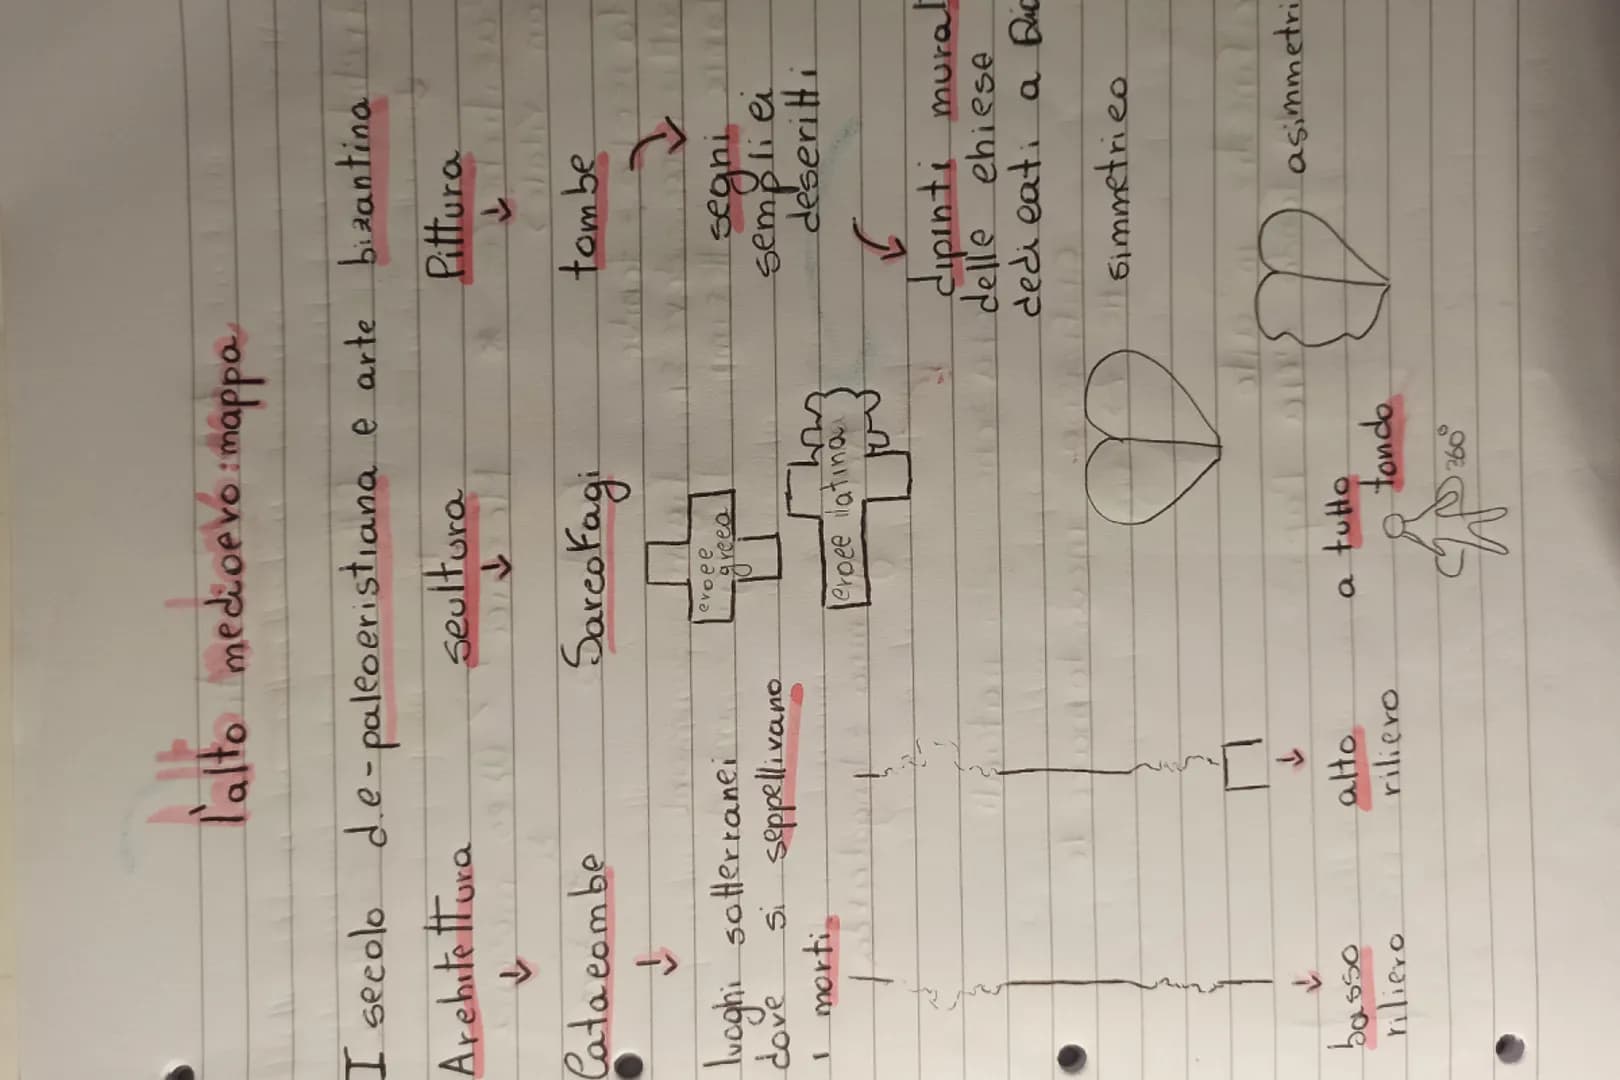 l'alto medioevo: mappa
I secolo d.c - paleocristiana e arte bizantina
Architettura scultura Pittura
Catacombe Sarcofagi tombe
luoghi sotterranei
dove si seppellivano
i morti
croce
greca
croce latina
segni
semplici
descritti
dipinti mural
delle chiese
dedicati a Dio
simmetrico
asimmetri
basso
riliero
alto
riliero
a tutto
tondo
360°